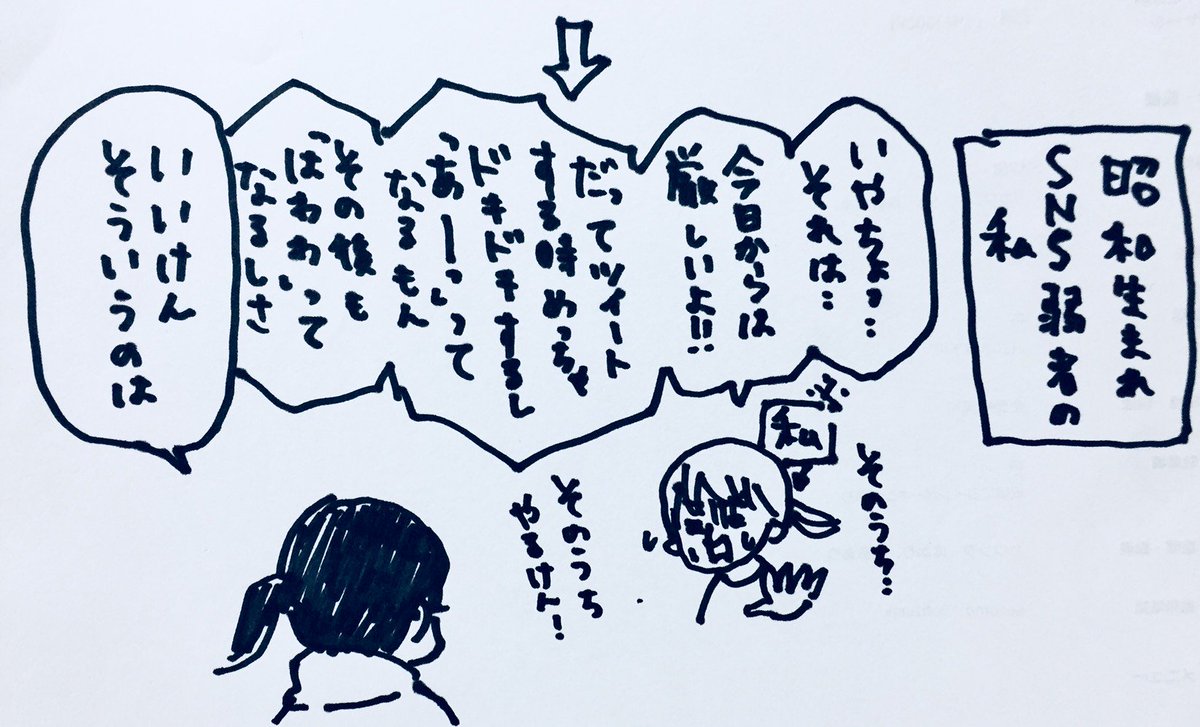 昭和生まれ
SNS弱者の
私
いやちょっ‥
それは‥
今日からは
厳しいよ!!
だってツイート
する時めっちゃ
ドキドキするし
「あーっ」って
なるもん
その後も
「はわわ」って
なるしさ
いいけん
そういうのは
私
そのうち‥
そのうち
やるけん!